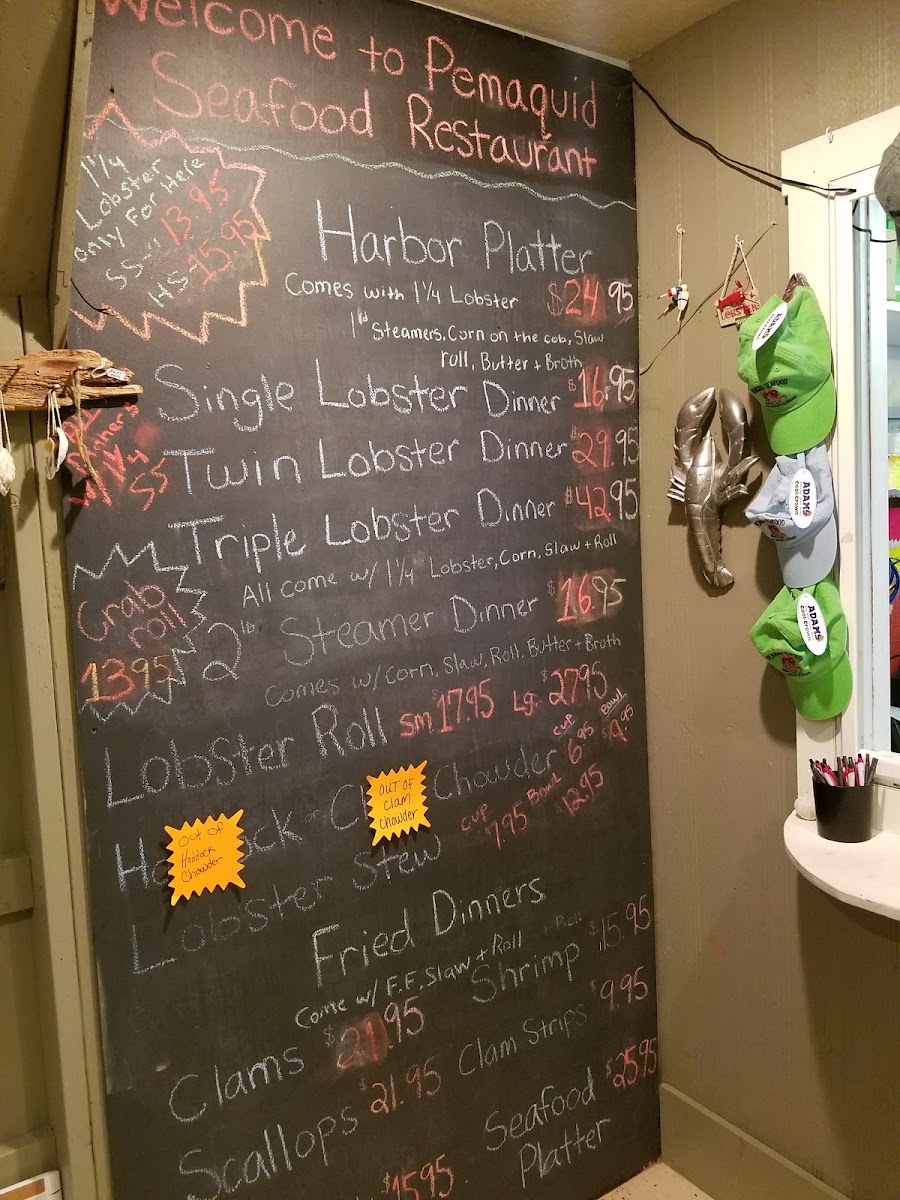 Welcome to Pemaquid
Seafood Restaurant
1 1/4
Lobster
only For Here
SS-" 13.95
HS- 15.95
Harbor Platter
Comes with 1 1/4 Lobster $24.95
1lb Steamers, Corn on the cob, Slaw
roll, Butter + Broth
Single Lobster Dinner $16.95
Twin Lobster Dinner $29.95
Triple Lobster Dinner $42.95
All come w/ 1 1/4 Lobster, Corn, Slaw + Roll
Dinners
SS
Crab
roll
13.95
2lb Steamer Dinner $16.95
Comes w/ Corn, Slaw, Roll, Butter + Broth
Lobster Roll Sm. $17.95 Lg. $27.95
Cup Bowl
Chowder 6.95 $9.95
out of
Haddock
Chowder
OUT OF
Clam
Chowder
Lobster Stew Cup $7.95 Bowl $12.95
Fried Dinners
Come w/ F.F. Slaw + Roll
Shrimp $15.95
Clams $21.95
Clam Strips $9.95
Scallops $21.95
Seafood $25.95
Platter
$15.95
ADAMS
Cool-Crown
ADAMS
Cool-Crown